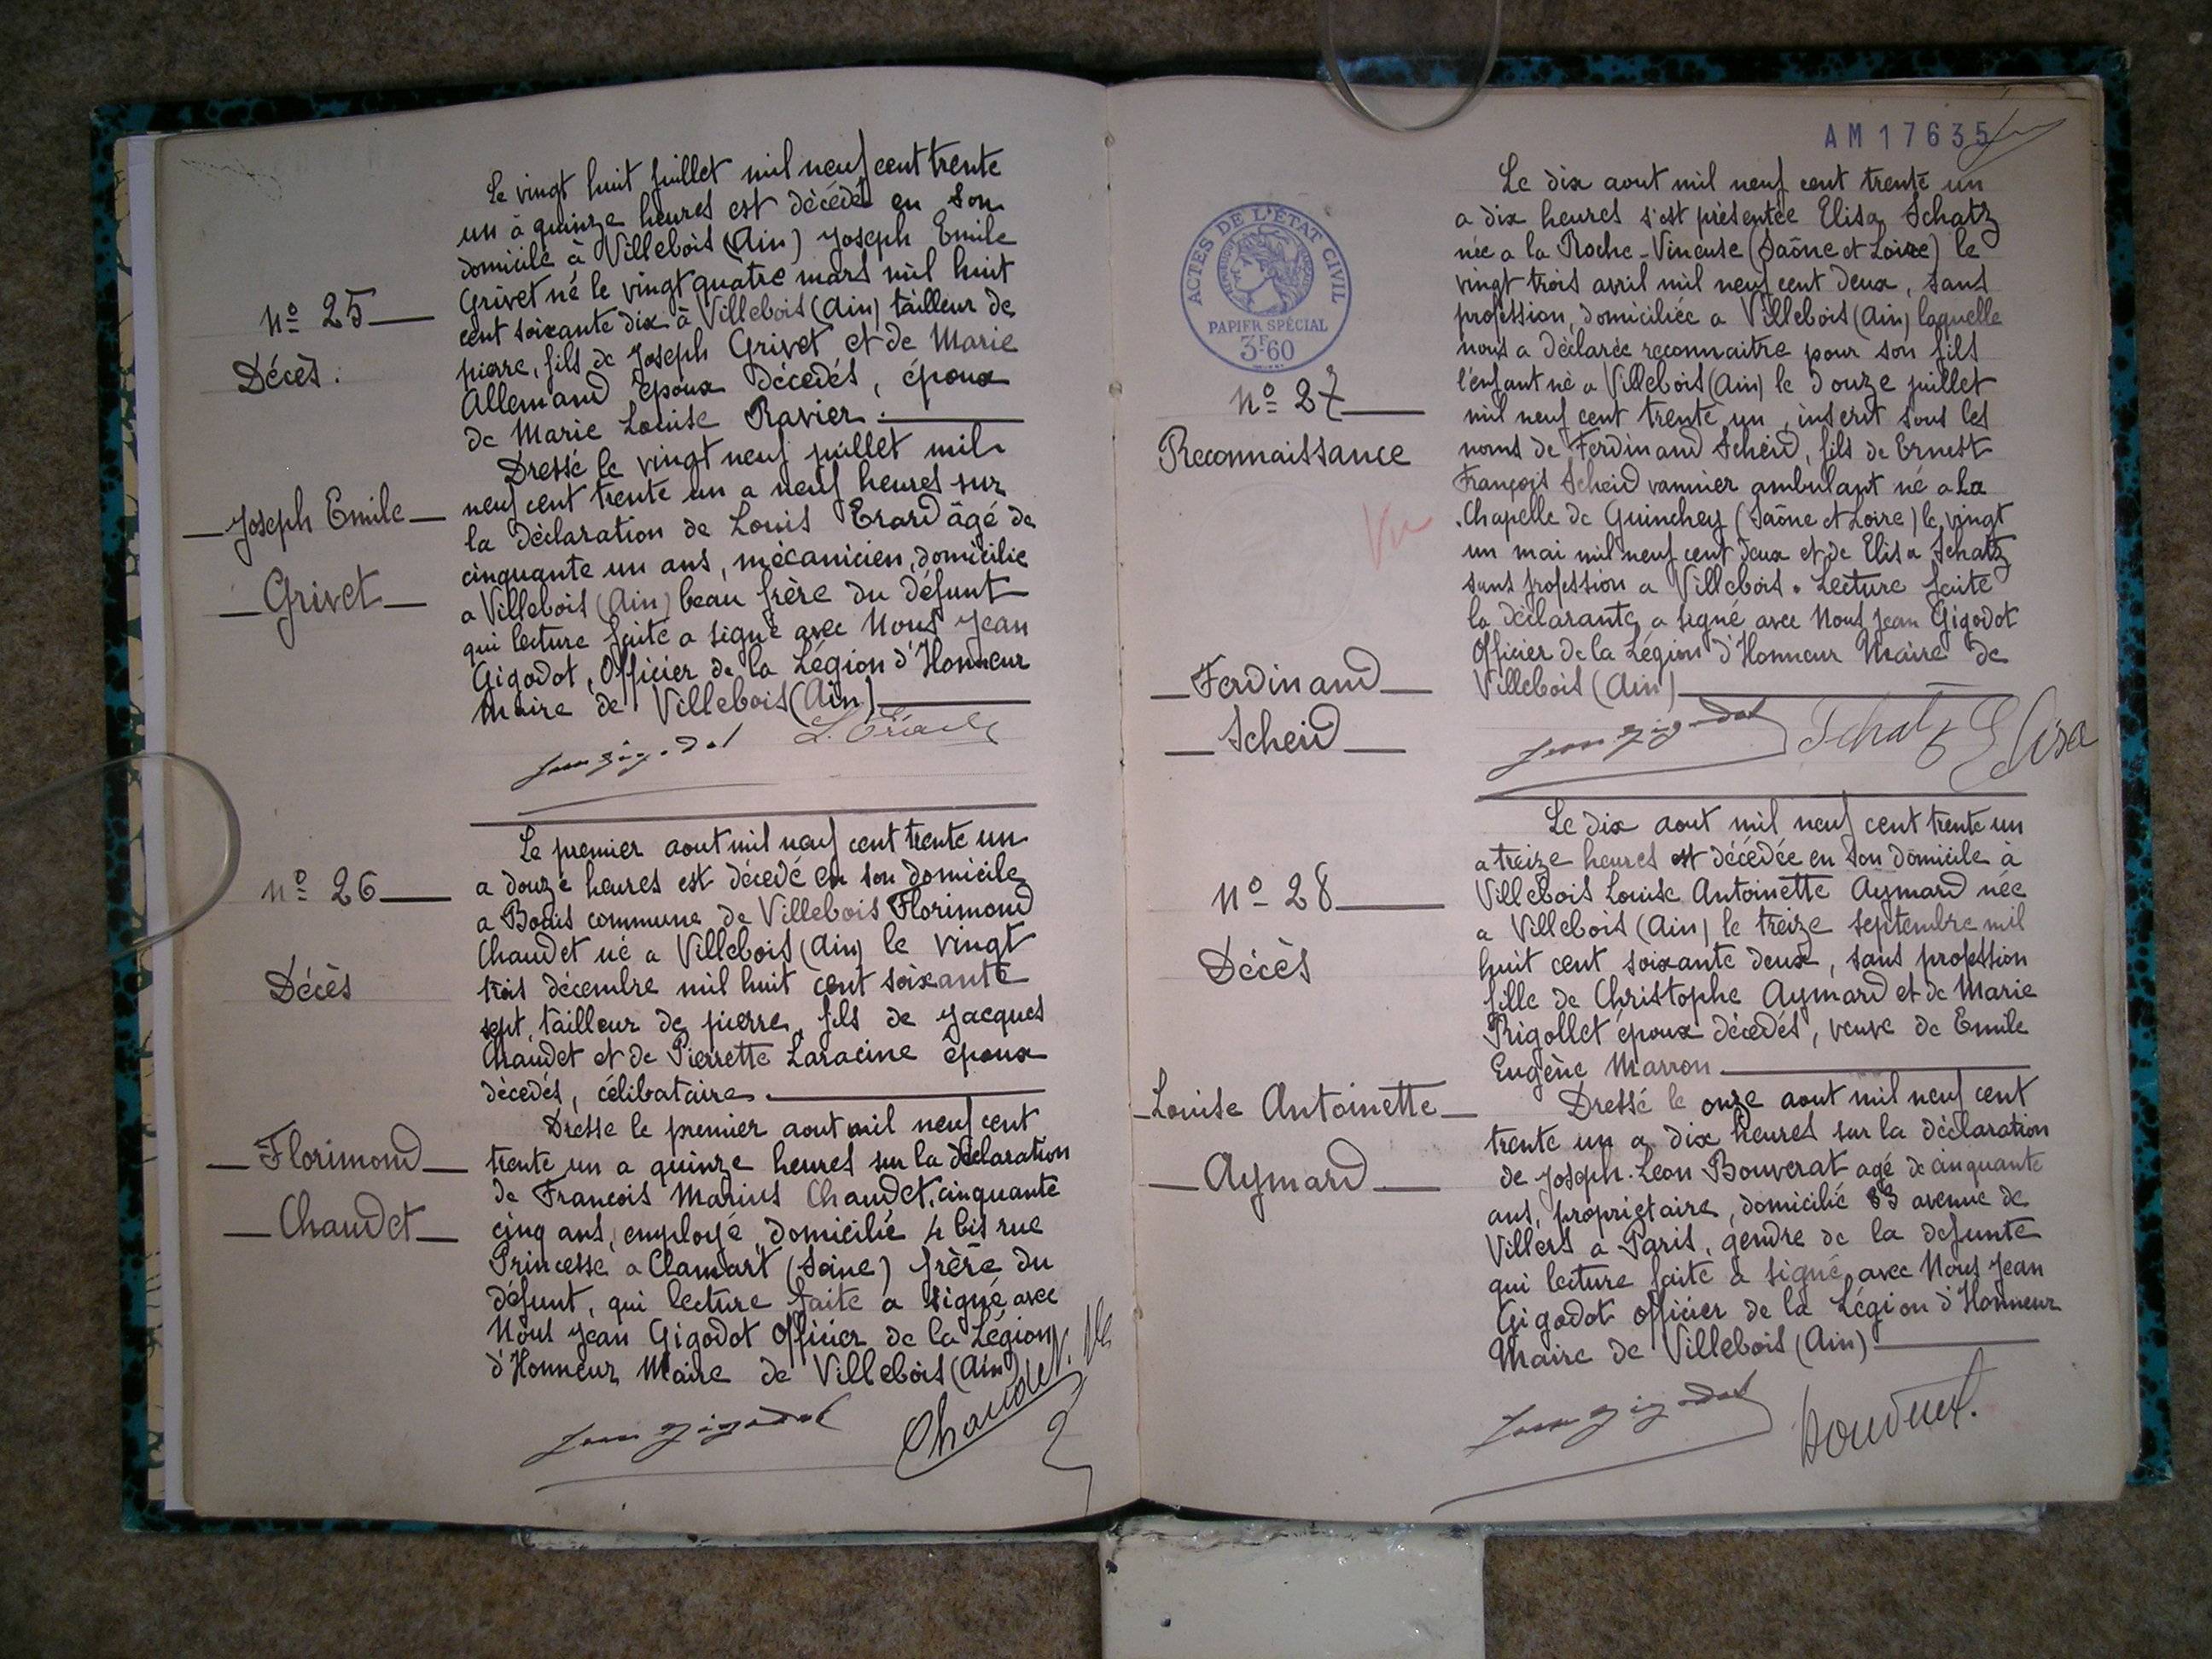 Nº 25
Décès.
Joseph Emile
Grivet
Le vingt huit juillet mil neuf cent trente
un à quinze heures est décédé en son
domicile à Villebois (Ain) Joseph Emile
Grivet né le vingt quatre mars mil huit
cent soixante dix à Villebois (Ain) tailleur de
pierre, fils de Joseph Grivet et de Marie
Allemand époux décédés, époux
de Marie Louise Ravier.
Dressé le vingt neuf juillet mil
neuf cent trente un a neuf heures sur
la déclaration de Louis Erard âgé de
cinquante un ans, mécanicien, domicilié
a Villebois (Ain) beau frère du défunt
qui lecture faite a signé avec Nous Jean
Gigodot, Officier de la Légion d'Honneur
Maire de Villebois (Ain)
Jean Gigodot L. Erard
Nº 26
Décès
Florimond
Chaudet
Le premier aout mil neuf cent trente un
a douze heures est décédé en son domicile
a Bouis commune de Villebois Florimond
Chaudet né a Villebois (Ain) le vingt
trois décembre mil huit cent soixante
sept, tailleur de pierre, fils de Jacques
Chaudet et de Pierrette Laracine époux
décédés, célibataire.
Dresse le premier aout mil neuf cent
trente un a quinze heures sur la déclaration
de Francois Marius Chaudet, cinquante
cinq ans, employé, domicilié 4 bis rue
Princesse a Clamart (Seine) frère du
défunt, qui lecture faite a signé avec
Nous Jean Gigodot Officier de la Légion
d'Honneur Maire de Villebois (Ain)
Jean Gigodot Chaudet
AM 17635
ACTES DE L'ÉTAT CIVIL
PAPIER SPÉCIAL
3F60
Nº 27
Reconnaissance
Vu
Ferdinand
Scheid
Le dix aout mil neuf cent trente un
a dix heures s'est présentée Elisa Schatz
née a la Roche-Vineuse (Saône et Loire) le
vingt trois avril mil neuf cent deux, sans
profession, domiciliée a Villebois (Ain) laquelle
nous a déclarée reconnaitre pour son fils
l'enfant né a Villebois (Ain) le douze juillet
mil neuf cent trente un, inscrit sous les
noms de Ferdinand Scheid, fils de Ernest
François Scheid vannier ambulant né a La
Chapelle de Guinchey (Saône et Loire) le vingt
un mai mil neuf cent deux et de Elisa Schatz
sans profession a Villebois. Lecture faite
la déclarante a signé avec Nous Jean Gigodot
Officier de la Légion d'Honneur Maire de
Villebois (Ain)
Jean Gigodot Schatz Elisa
Nº 28
Décès
Louise Antoinette
Aymard
Le dix aout mil neuf cent trente un
a treize heures est décédée en son domicile à
Villebois Louise Antoinette Aymard née
a Villebois (Ain) le treize septembre mil
huit cent soixante deux, sans profession
fille de Christophe Aymard et de Marie
Rigollet époux décédés, veuve de Emile
Eugène Marron
Dressé le onze aout mil neuf cent
trente un a dix heures sur la déclaration
de Joseph-Leon Bouverat agé de cinquante
ans, propriétaire, domicilié 83 avenue de
Villers a Paris, gendre de la defunte
qui lecture faite a signé avec Nous Jean
Gigodot officier de la Légion d'Honneur
Maire de Villebois (Ain)
Jean Gigodot